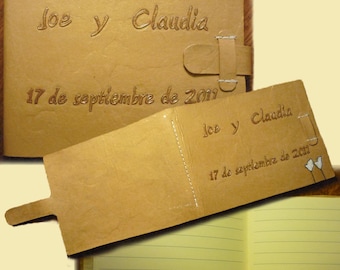 Joe y Claudia
17 de septiembre de
Joe y Claudia
17 de septiembre de 2011